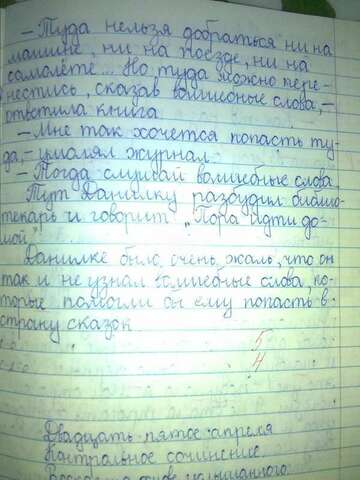 – Туда нельзя добраться ни на
машине, ни на поезде, ни на
самолёте... Но туда можно пере-
нестись, сказав волшебные слова, –
ответила книга.
– Мне так хочется попасть ту-
да, – умолял журнал.
– Тогда слушай волшебные слова.
Тут Данилку разбудил библио-
текарь и говорит „Пора идти до-
мой".
Данилке было очень жаль, что он
так и не узнал волшебные слова, ко-
торые помогли бы ему попасть в
страну сказок.
5
4
Двадцать пятое апреля
Контрольное сочинение